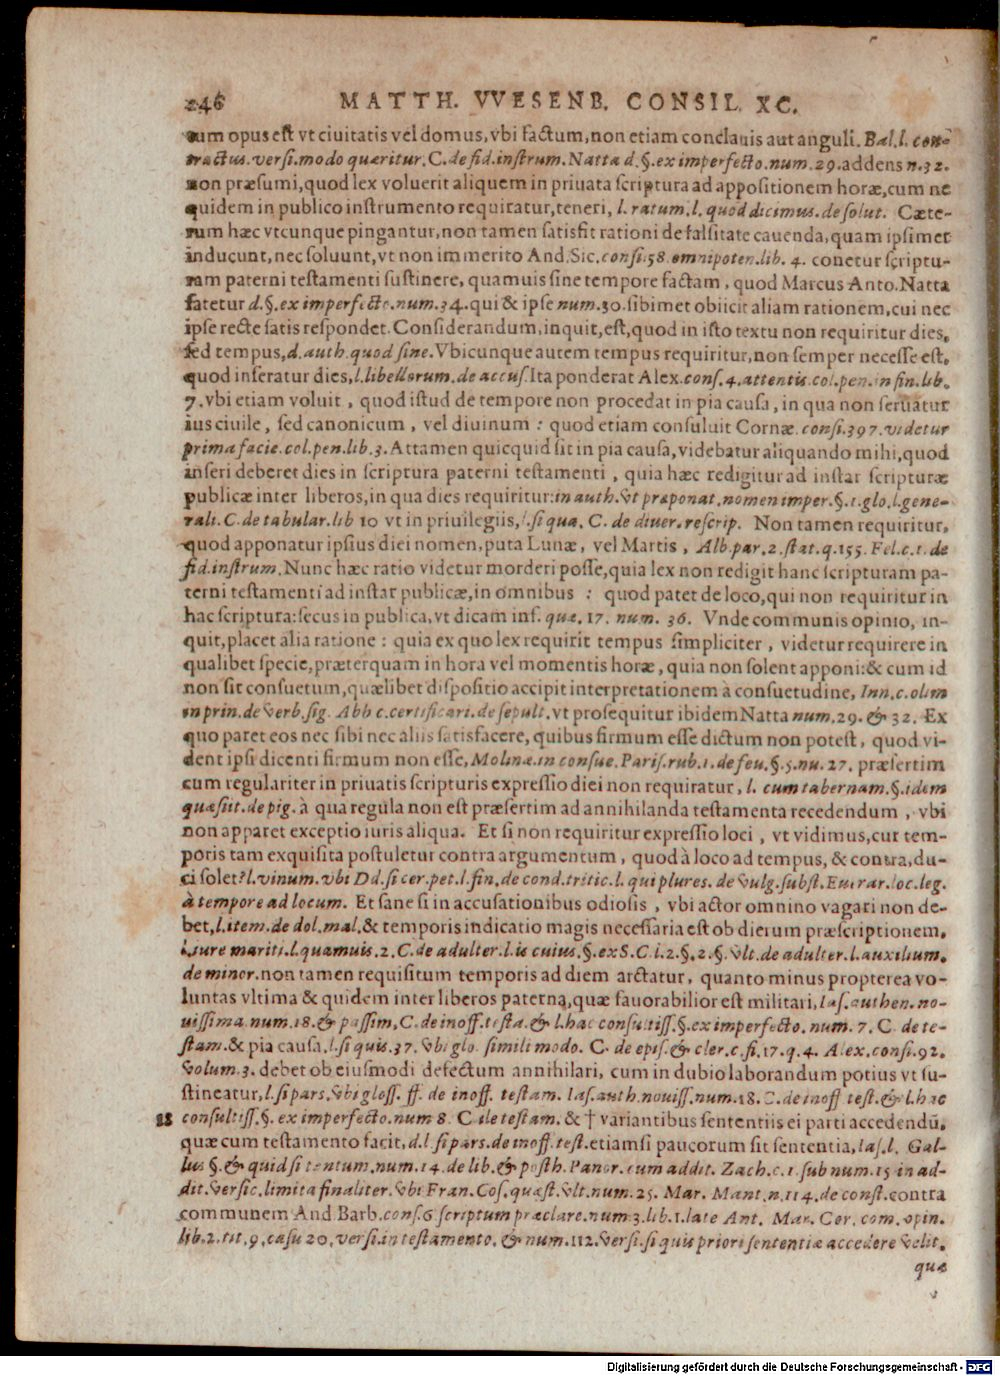 246 MATTH. VVESENB. CONSIL. XC.
cum opus est vt ciuitatis vel domus, vbi factum, non etiam conclauis aut anguli. Bal. l. con-
tractus. versi. modo quæritur. C. de fid. instrum. Natta d. §. ex imperfecto. num. 29. addens n. 32.
non præsumi, quod lex voluerit aliquem in priuata scriptura ad appositionem horæ, cum ne
quidem in publico instrumento requiratur, teneri, l. ratum. l. quod dicimus. de solut. Cæte-
rum hæc vtcunque pingantur, non tamen satisfit rationi de falsitate cauenda, quam ipsimet
inducunt, nec soluunt, vt non immerito And. Sic. consi. 58. omnipoten. lib. 4. conetur scriptu-
ram paterni testamenti sustinere, quamuis sine tempore factam, quod Marcus Anto. Natta
fatetur d. §. ex imperfecto. num. 34. qui & ipse num. 30. sibimet obiicit aliam rationem, cui nec
ipse recte satis respondet. Considerandum, inquit, est, quod in isto textu non requiritur dies,
sed tempus, d. auth. quod sine. Vbicunque autem tempus requiritur, non semper necesse est,
quod inseratur dies, l. libellorum. de accus. Ita ponderat Alex. cons. 4. attentis. col. pen. in fin. lib.
7. vbi etiam voluit, quod istud de tempore non procedat in pia causa, in qua non seruatur
ius ciuile, sed canonicum, vel diuinum: quod etiam consuluit Cornæ. consi. 397. videtur
prima facie. col. pen. lib. 3. Attamen quicquid sit in pia causa, videbatur aliquando mihi, quod
inseri deberet dies in scriptura paterni testamenti, quia hæc redigitur ad instar scripturæ
publicæ inter liberos, in qua dies requiritur: in auth. vt præponat. nomen imper. §. 1. glo. l. gene-
rali. C. de tabular. lib 10 vt in priuilegiis, l. si qua. C. de diuer. rescrip. Non tamen requiritur,
quod apponatur ipsius diei nomen, puta Lunæ, vel Martis, Alb. par. 2. stat. q. 155. Fel. c. 1. de
fid. instrum. Nunc hæc ratio videtur morderi posse, quia lex non redigit hanc scripturam pa-
terni testamenti ad instar publicæ, in omnibus: quod patet de loco, qui non requiritur in
hac scriptura: secus in publica, vt dicam inf. quæ. 17. num. 36. Vnde communis opinio, in-
quit, placet alia ratione: quia ex quo lex requirit tempus simpliciter, videtur requirere in
qualibet specie, præterquam in hora vel momentis horæ, quia non solent apponi: & cum id
non sit consuetum, quælibet dispositio accipit interpretationem à consuetudine, Inn. c. olim
in prin. de verb. sig. Abb c. certificari. de sepult. vt prosequitur ibidem Natta num. 29. & 32. Ex
quo paret eos nec sibi nec aliis satisfacere, quibus firmum esse dictum non potest, quod vi-
dent ipsi dicenti firmum non esse, Molinæ. in consue. Paris. rub. 1. de feu. §. 5. nu. 27. præsertim
cum regulariter in priuatis scripturis expressio diei non requiratur, l. cum tabernam. §. idem
quæsiit. de pig. à qua regula non est præsertim ad annihilanda testamenta recedendum, vbi
non apparet exceptio iuris aliqua. Et si non requiritur expressio loci, vt vidimus, cur tem-
poris tam exquisita postuletur contra argumentum, quod à loco ad tempus, & contra, du-
ci solet? l. vinum. vbi Dd. si cer. pet. l. fin. de cond. tritic. l. qui plures. de vulg. subst. Euerar. loc. leg.
à tempore ad locum. Et sane si in accusationibus odiosis, vbi actor omnino vagari non de-
bet, l. item. de dol. mal. & temporis indicatio magis necessaria est ob dierum præscriptionem,
l. iure mariti. l. quamuis. 2. C. de adulter. l. is cuius. §. ex S. C. l. 2. §. 2. §. vlt. de adulter. l. auxilium.
de minor. non tamen requisitum temporis ad diem arctatur, quanto minus propterea vo-
luntas vltima & quidem inter liberos paterna, quæ fauorabilior est militari, Ias. authen. no-
uissima. num. 18. & passim, C. de inoff. testa. & l. hac consultiss. §. ex imperfecto. num. 7. C. de te-
stam. & pia causa, l. si quis. 37. vbi glo. simili modo. C. de epis. & cler. c. fi. 17. q. 4. Alex. consi. 92.
volum. 3. debet ob eiusmodi defectum annihilari, cum in dubio laborandum potius vt su-
stineatur, l. si pars. vbi gloss. ff. de inoff. testam. Ias. auth. nouiss. num. 18. C. de inoff test. & l. hac
88 consultiss. §. ex imperfecto. num 8. C de testam. & † variantibus sententiis ei parti accedendū,
quæ cum testamento facit, d. l. si pars. de inoff. test. etiamsi paucorum sit sententia, Ias. l. Gal-
lus §. & quid si tantum. num. 14. de lib. & posth. Panor. cum addit. Zach. c. 1. sub num. 15 in ad-
dit. versic. limita finaliter. vbi Fran. Cos. quæst. vlt. num. 25. Mar. Mant. n. 114. de const. contra
communem And. Barb. cons. 6 scriptum præclare. num. 3. lib. 1. late Ant. Mar. Cor. com. opin.
lib. 2. tit. 9. casu 20. versi. in testamento. & num. 112. versi. si quis priori sententiæ accedere velit.
quæ
Digitalisierung gefördert durch die Deutsche Forschungsgemeinschaft - DFG